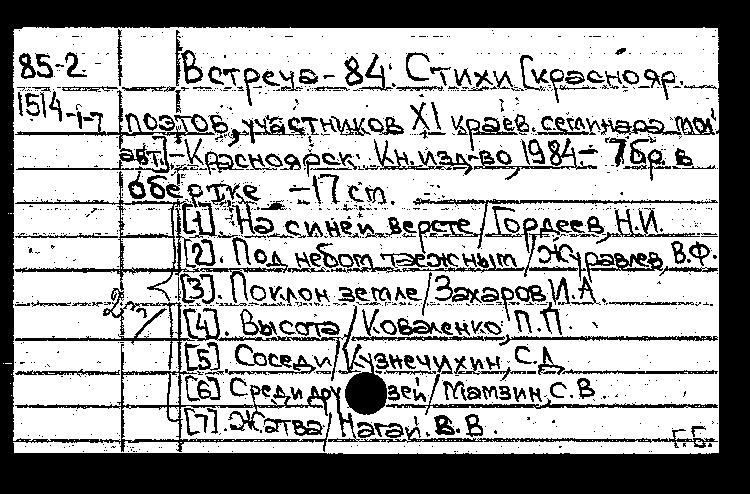 85-2 Встреча-84: Стихи [краснояр.
1514-1-7 поэтов, участников XI краев. семинара мол.
авт.].-Красноярск: Кн.изд-во, 1984.- 7бр. в
обертке -17 cm.
[1]. На синей версте/Гордеев, Н.И.
[2]. Под небом таежным/Журавлев, В.Ф.
[3]. Поклон земле/Захаров, И.А.
[4]. Высота/Коваленко, П.П.
[5] Соседи/Кузнечихин, С.Д.
[6] Среди друзей/Мамзин, С.В.
[7]. Жатва/Нагай. В.В.
Г.Б.